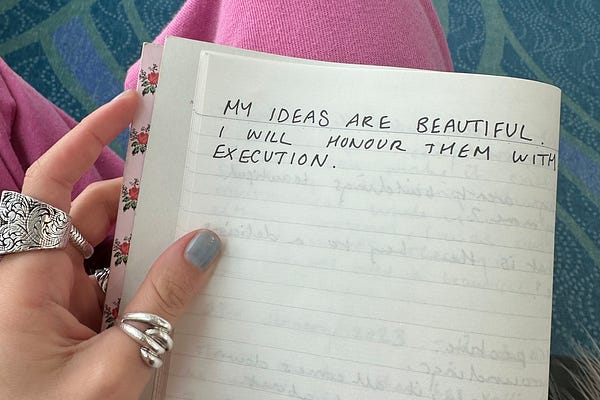 MY IDEAS ARE BEAUTIFUL.
I WILL HONOUR THEM WITH
EXECUTION.